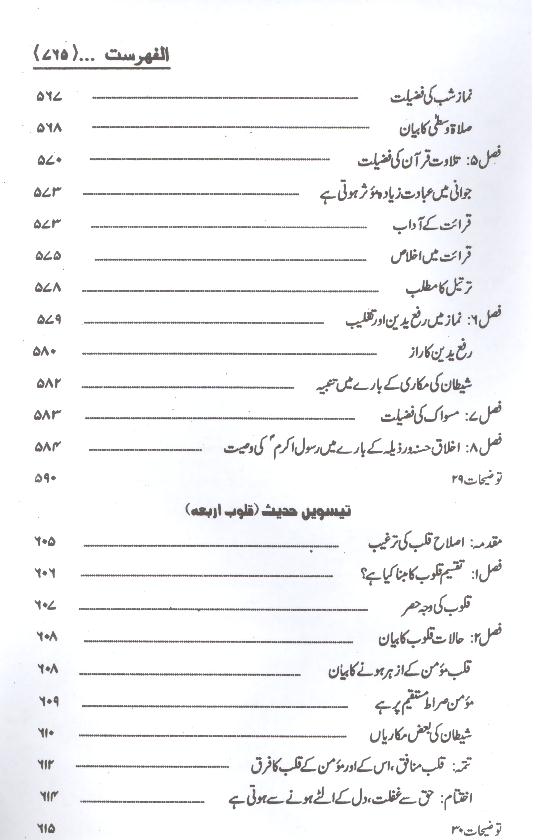 الفہرست ...(۷۶۵)
نماز شب کی فضیلت ۵۶۷
صلاۃ وسطٰی کا بیان ۵۶۸
فصل ۵: تلاوت قرآن کی فضیلت ۵۷۰
جوانی میں عبادت زیادہ مؤثر ہوتی ہے ۵۷۳
قرائت کے آداب ۵۷۳
قرائت میں اخلاص ۵۷۵
ترتیل کا مطلب ۵۷۸
فصل ۶: نماز میں رفع یدین اور تقلیب ۵۷۹
رفع یدین کا راز ۵۸۰
شیطان کی مکاری کے بارے میں تنبیہ ۵۸۲
فصل ۷: مسواک کی فضیلت ۵۸۳
فصل ۸: اخلاق حسنہ ور ذیلہ کے بارے میں رسول اکرمؐ کی وصیت ۵۸۴
توضیحات ۲۹ ۵۹۰
تیسویں حدیث (قلوب اربعہ)
مقدمہ: اصلاح قلب کی ترغیب ۶۰۵
فصل ۱: تقسیم قلوب کا مبنا کیا ہے؟ ۶۰۶
قلوب کی وجہ حصر ۶۰۷
فصل ۲: حالات قلوب کا بیان ۶۰۸
قلب مؤمن کے ازہر ہونے کا بیان ۶۰۸
مؤمن صراط مستقیم پر ہے ۶۰۹
شیطان کی بعض مکاریاں ۶۱۰
تتمہ: قلب منافق، اس کے اور مؤمن کے قلب کا فرق ۶۱۲
اختتام: حق سے غفلت، دل کے الٹے ہونے سے ہوتی ہے ۶۱۴
توضیحات ۳۰ ۶۱۵